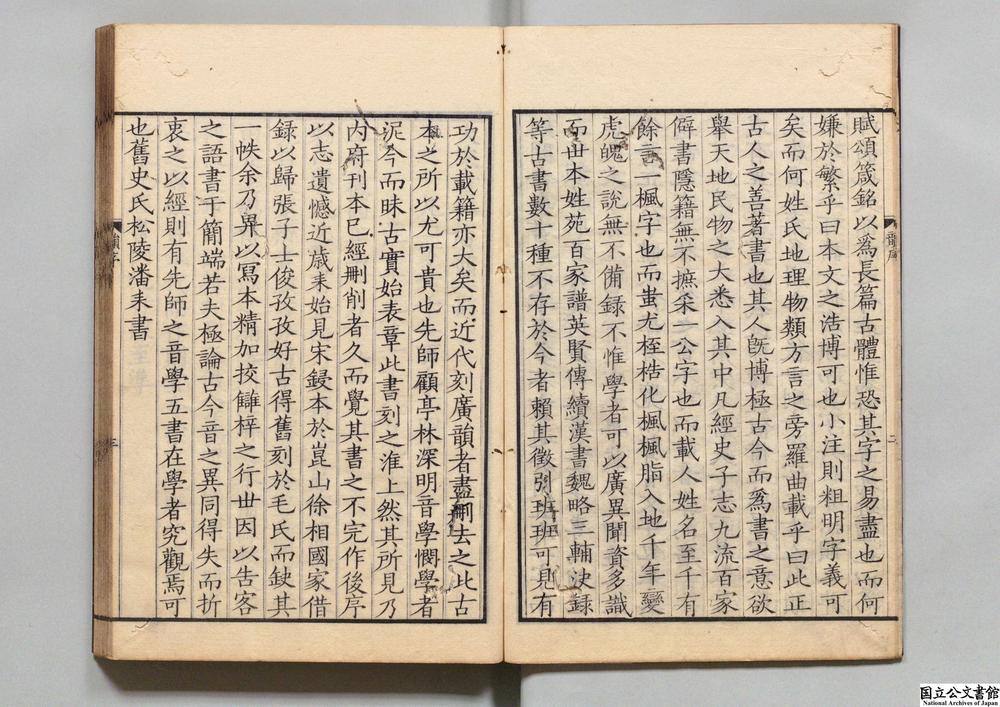 賦頌箴銘以爲長篇古體惟恐其字之易盡也而何
嫌於繁乎曰本文之浩博可也小注則粗明字義可
矣而何姓氏地理物類方言之旁羅曲載乎曰此正
古人之善著書也其人旣博極古今而爲書之意欲
舉天地民物之大悉入其中凡經史子志九流百家
僻書隱籍無不摭采一公字也而載人姓名至千有
餘言一楓字也而蚩尤桎梏化楓楓脂入地千年變
虎魄之說無不備録不惟學者可以廣異聞資多識
而世本姓苑百家譜英賢傳續漢書魏略三輔決録
等古書數十種不存於今者賴其徵引班班可見有
韻序
二
功於載籍亦大矣而近代刻廣韻者盡刪去之此古
本之所以尤可貴也先師顧亭林深明音學憫學者
泥今而昧古實始表章此書刻之淮上然其所見乃
內府刊本已經刪削者久而覺其書之不完作後序
以志遺憾近歳耒始見宋鋟本於崑山徐相國家借
録以歸張子士俊孜孜好古得舊刻於毛氏而缺其
一帙余乃畀以冩本精加挍讎梓之行世因以告客
之語書于簡端若夫極論古今音之異同得失而折
衷之以經則有先師之音學五書在學者究觀焉可
也舊史氏松陵潘耒書
韻序
三
国立公文書館
National Archives of Japan